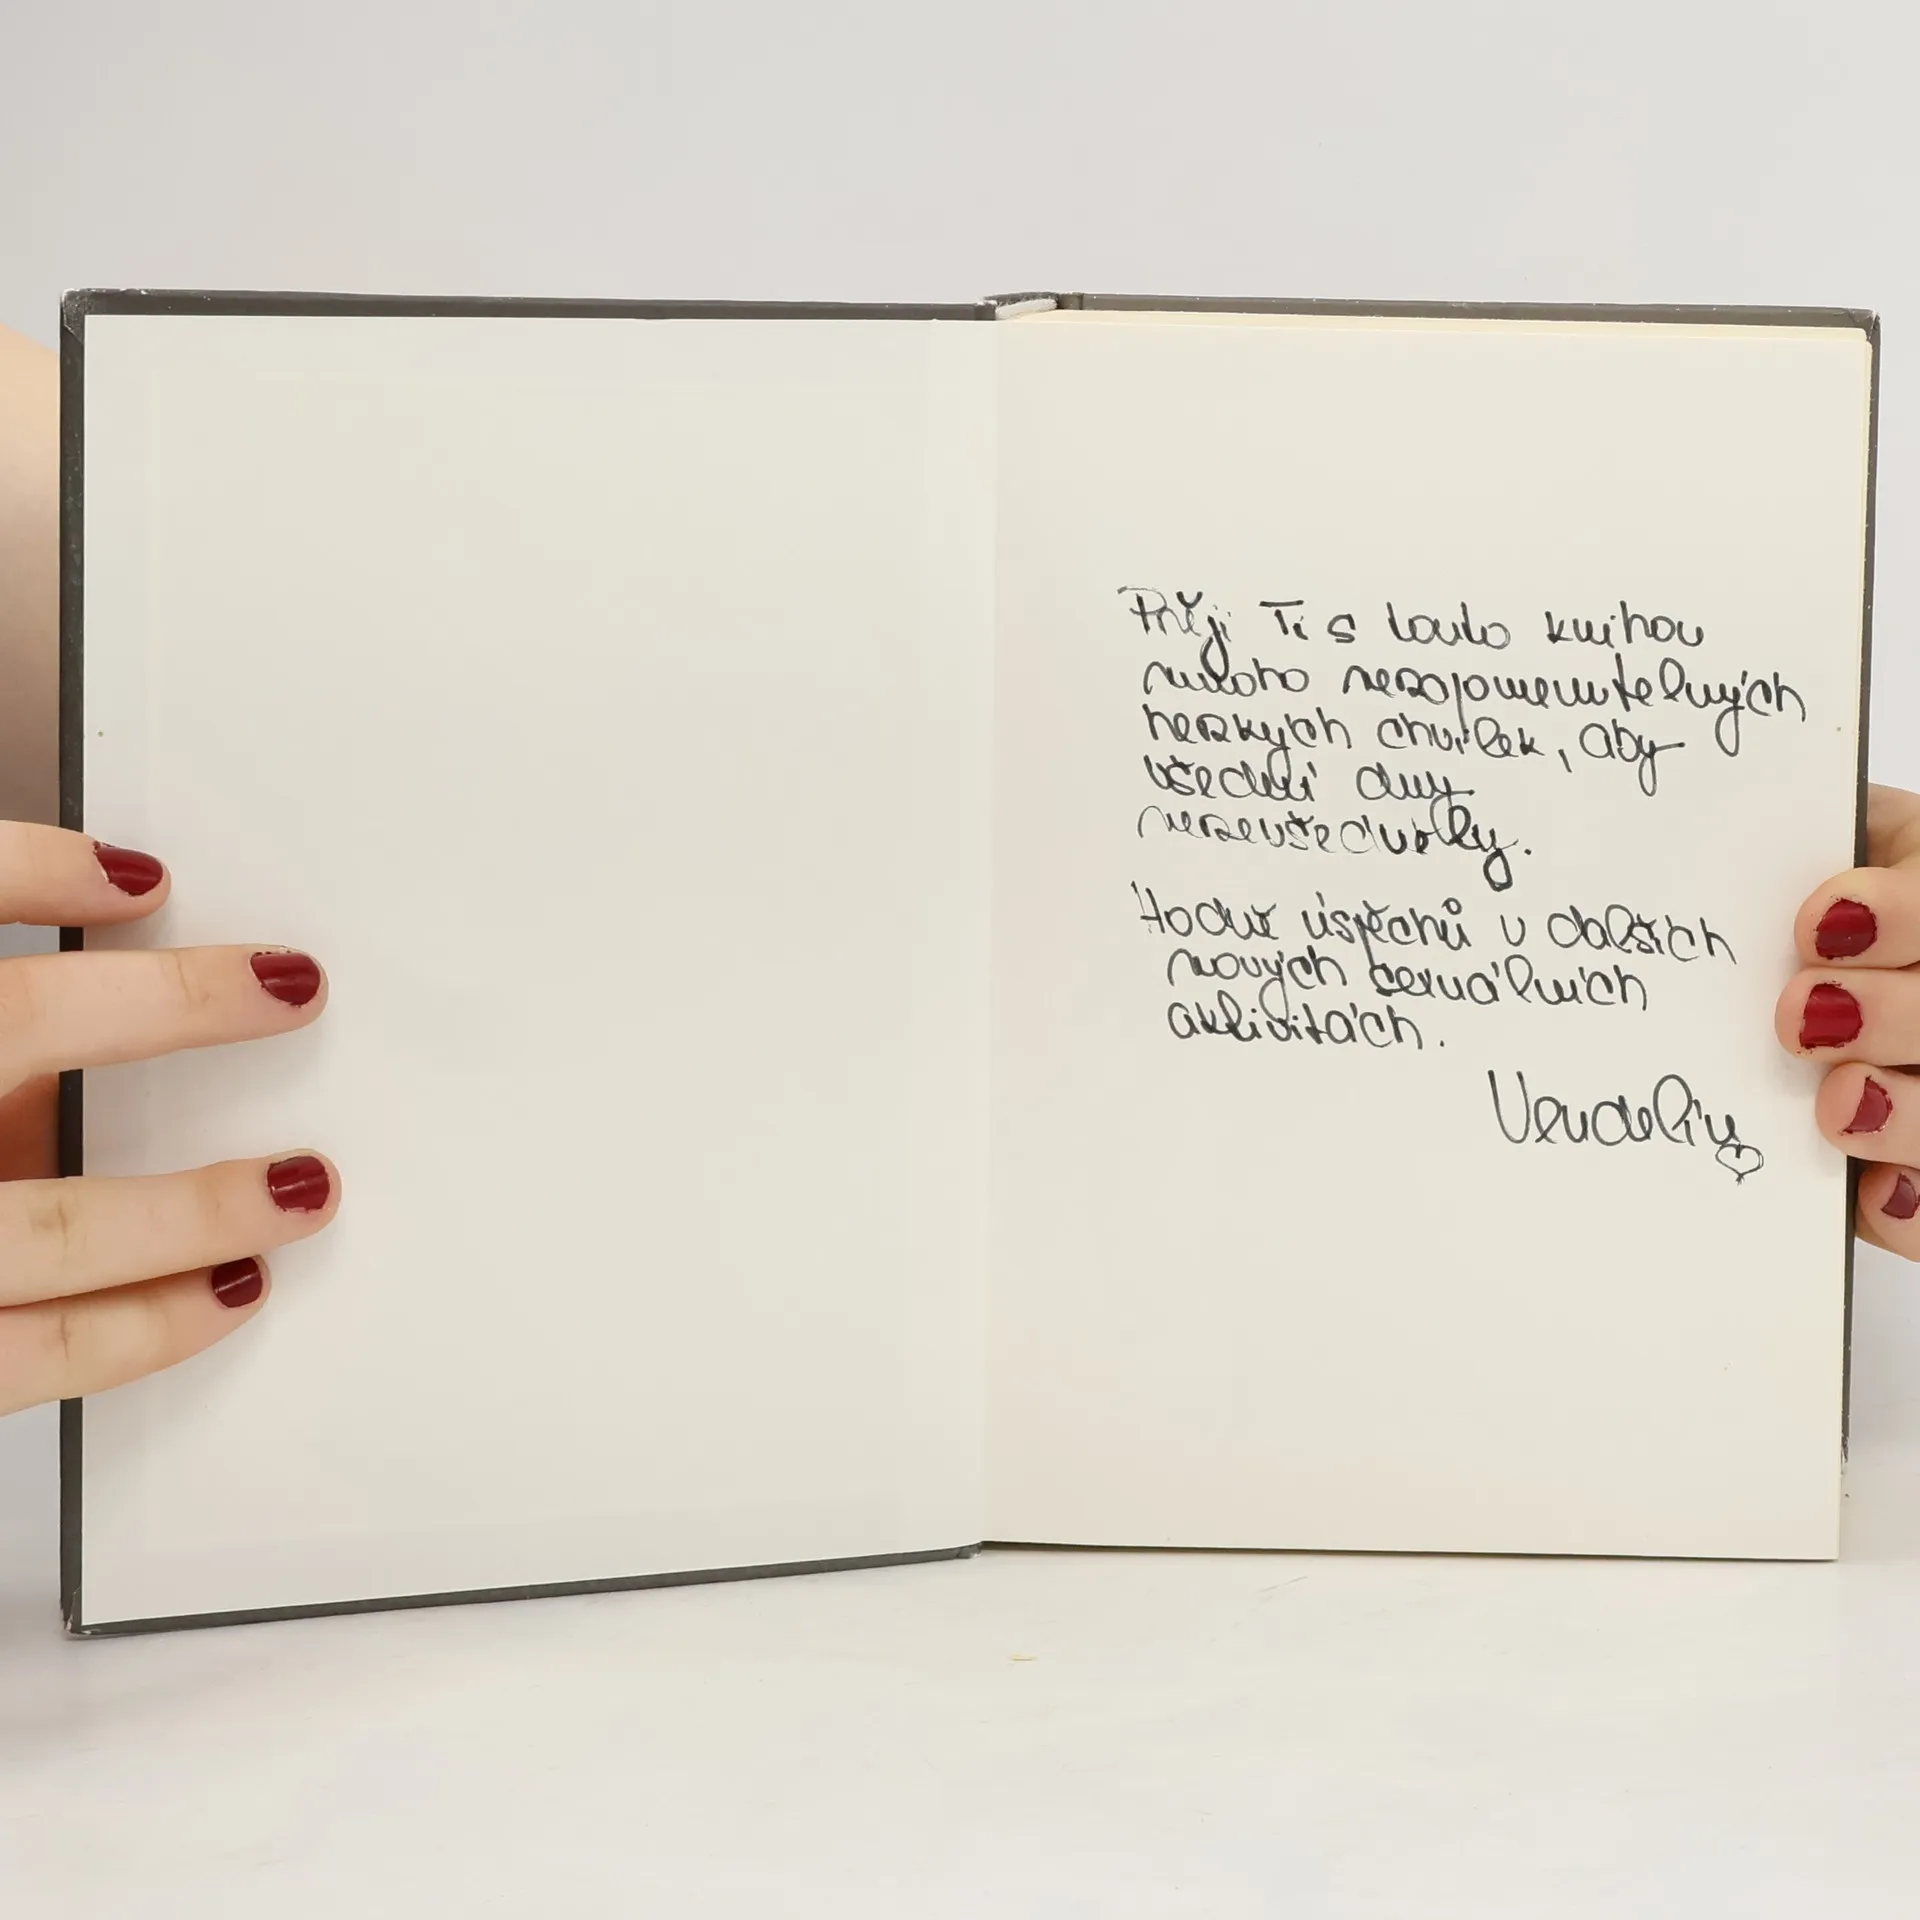 Přeji Ti s touto knihou
mnoho nezapomenutelných
hezkých chvilek, aby
všední dny
nezevšedněly.
Hodně úspěchů v dalších
nových sexuálních
aktivitách.
Vendelín